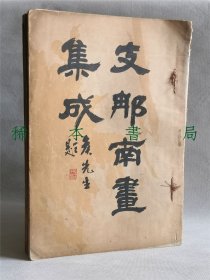 支那南畫
集成
彥先生題
稀 本 書 局